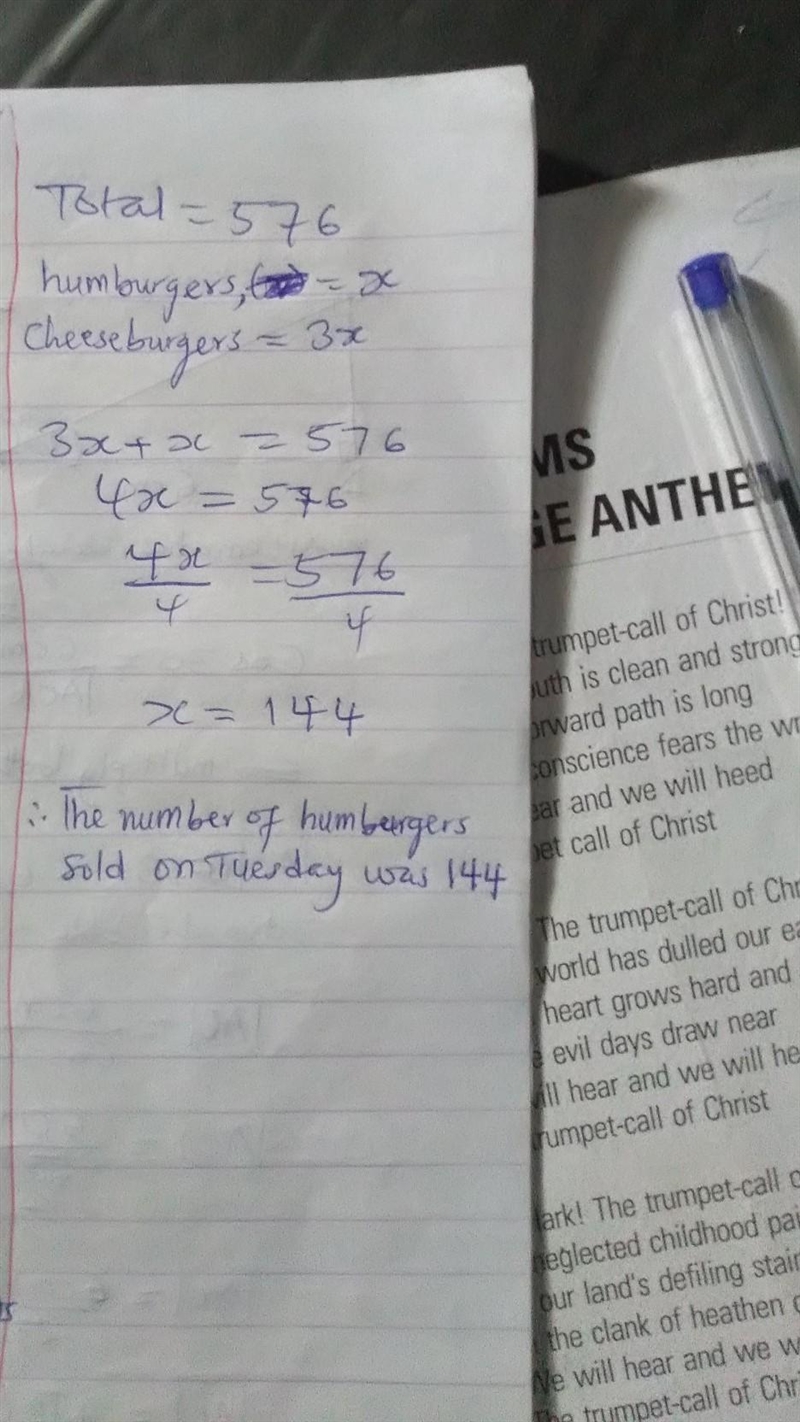 Total = 576
humburgers, = x
Cheeseburgers = 3x
3x + x = 576
4x = 576
4x/4 = 576/4
x = 144
∴ The number of humburgers
Sold on Tuesday was 144
MS
GE ANTHE
trumpet-call of Christ!
outh is clean and strong
orward path is long
conscience fears the wr
ear and we will heed
pet call of Christ
The trumpet-call of Chr
world has dulled our ea
heart grows hard and
e evil days draw near
will hear and we will he
trumpet-call of Christ
lark! The trumpet-call o
neglected childhood pai
our land's defiling stain
the clank of heathen c
We will hear and we w
The trumpet-call of Chri